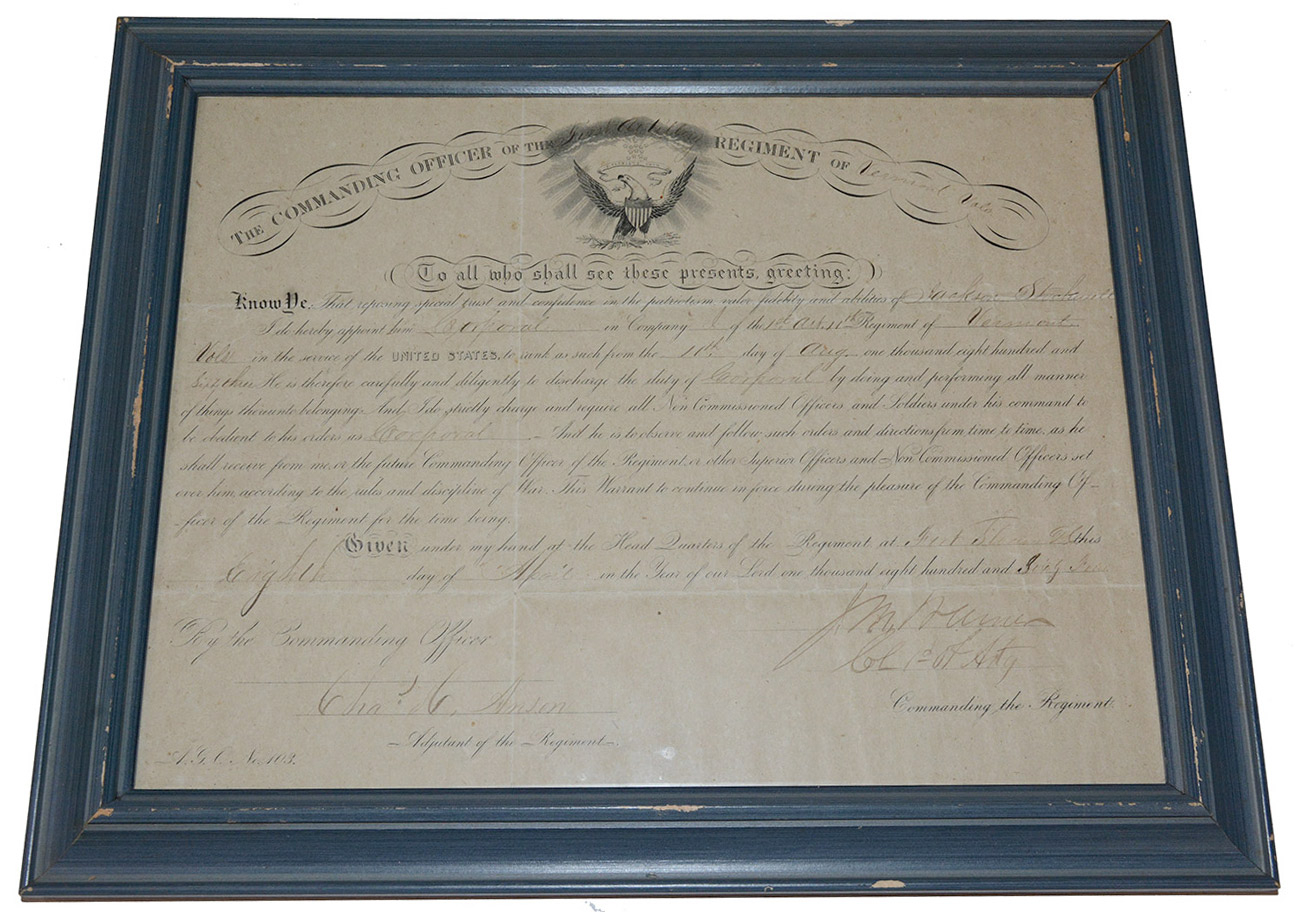 THE COMMANDING OFFICER OF THE First Artillery REGIMENT OF Vermont Vols
To all who shall see these presents, greeting:
Know Ye, That reposing special trust and confidence in the patriotism, valor, fidelity and abilities of Jackson
I do hereby appoint him Corporal in Company of the 1st Art. 11th Regiment of Vermont
Vols in the service of the UNITED STATES, to rank as such from the 11th day of Aug one thousand eight hundred and
Sixty three He is therefore carefully and diligently to discharge the duty of Corporal by doing and performing all manner
of things thereunto belonging. And I do strictly charge and require all Non Commissioned Officers and Soldiers under his command to
be obedient to his orders as Corporal And he is to observe and follow such orders and directions from time to time, as he
shall receive from me, or the future Commanding Officer of the Regiment, or other Superior Officers and Non Commissioned Officers set
over him, according to the rules and discipline of War. This Warrant to continue in force during the pleasure of the Commanding Of-
-ficer of the Regiment for the time being.
Given under my hand, at the Head Quarters of the Regiment, at Fort this
Eighth day of April in the Year of our Lord one thousand eight hundred and Sixty Four
By the Commanding Officer
J M Warner
Col 1st Arty
Commanding the Regiment.
Chas. H. Anson
Adjutant of the Regiment.
A. G. O. No. 103.